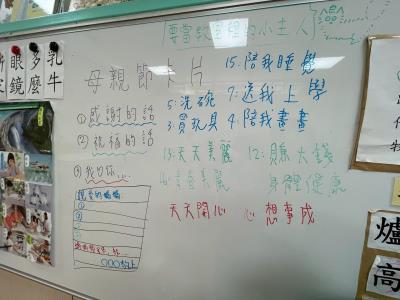 要當教室裡的小主人
母親節卡片
①感謝的話
②祝福的話
15.陪我睡覺
5.洗碗
7.送我上學
買玩具
4.陪我畫畫
13.天天美麗
12.賺大錢
身體健康
天天開心
心想事成
親愛的媽媽
①
②
③
○○○敬上
眼鏡
多麼
乳牛
爐
高